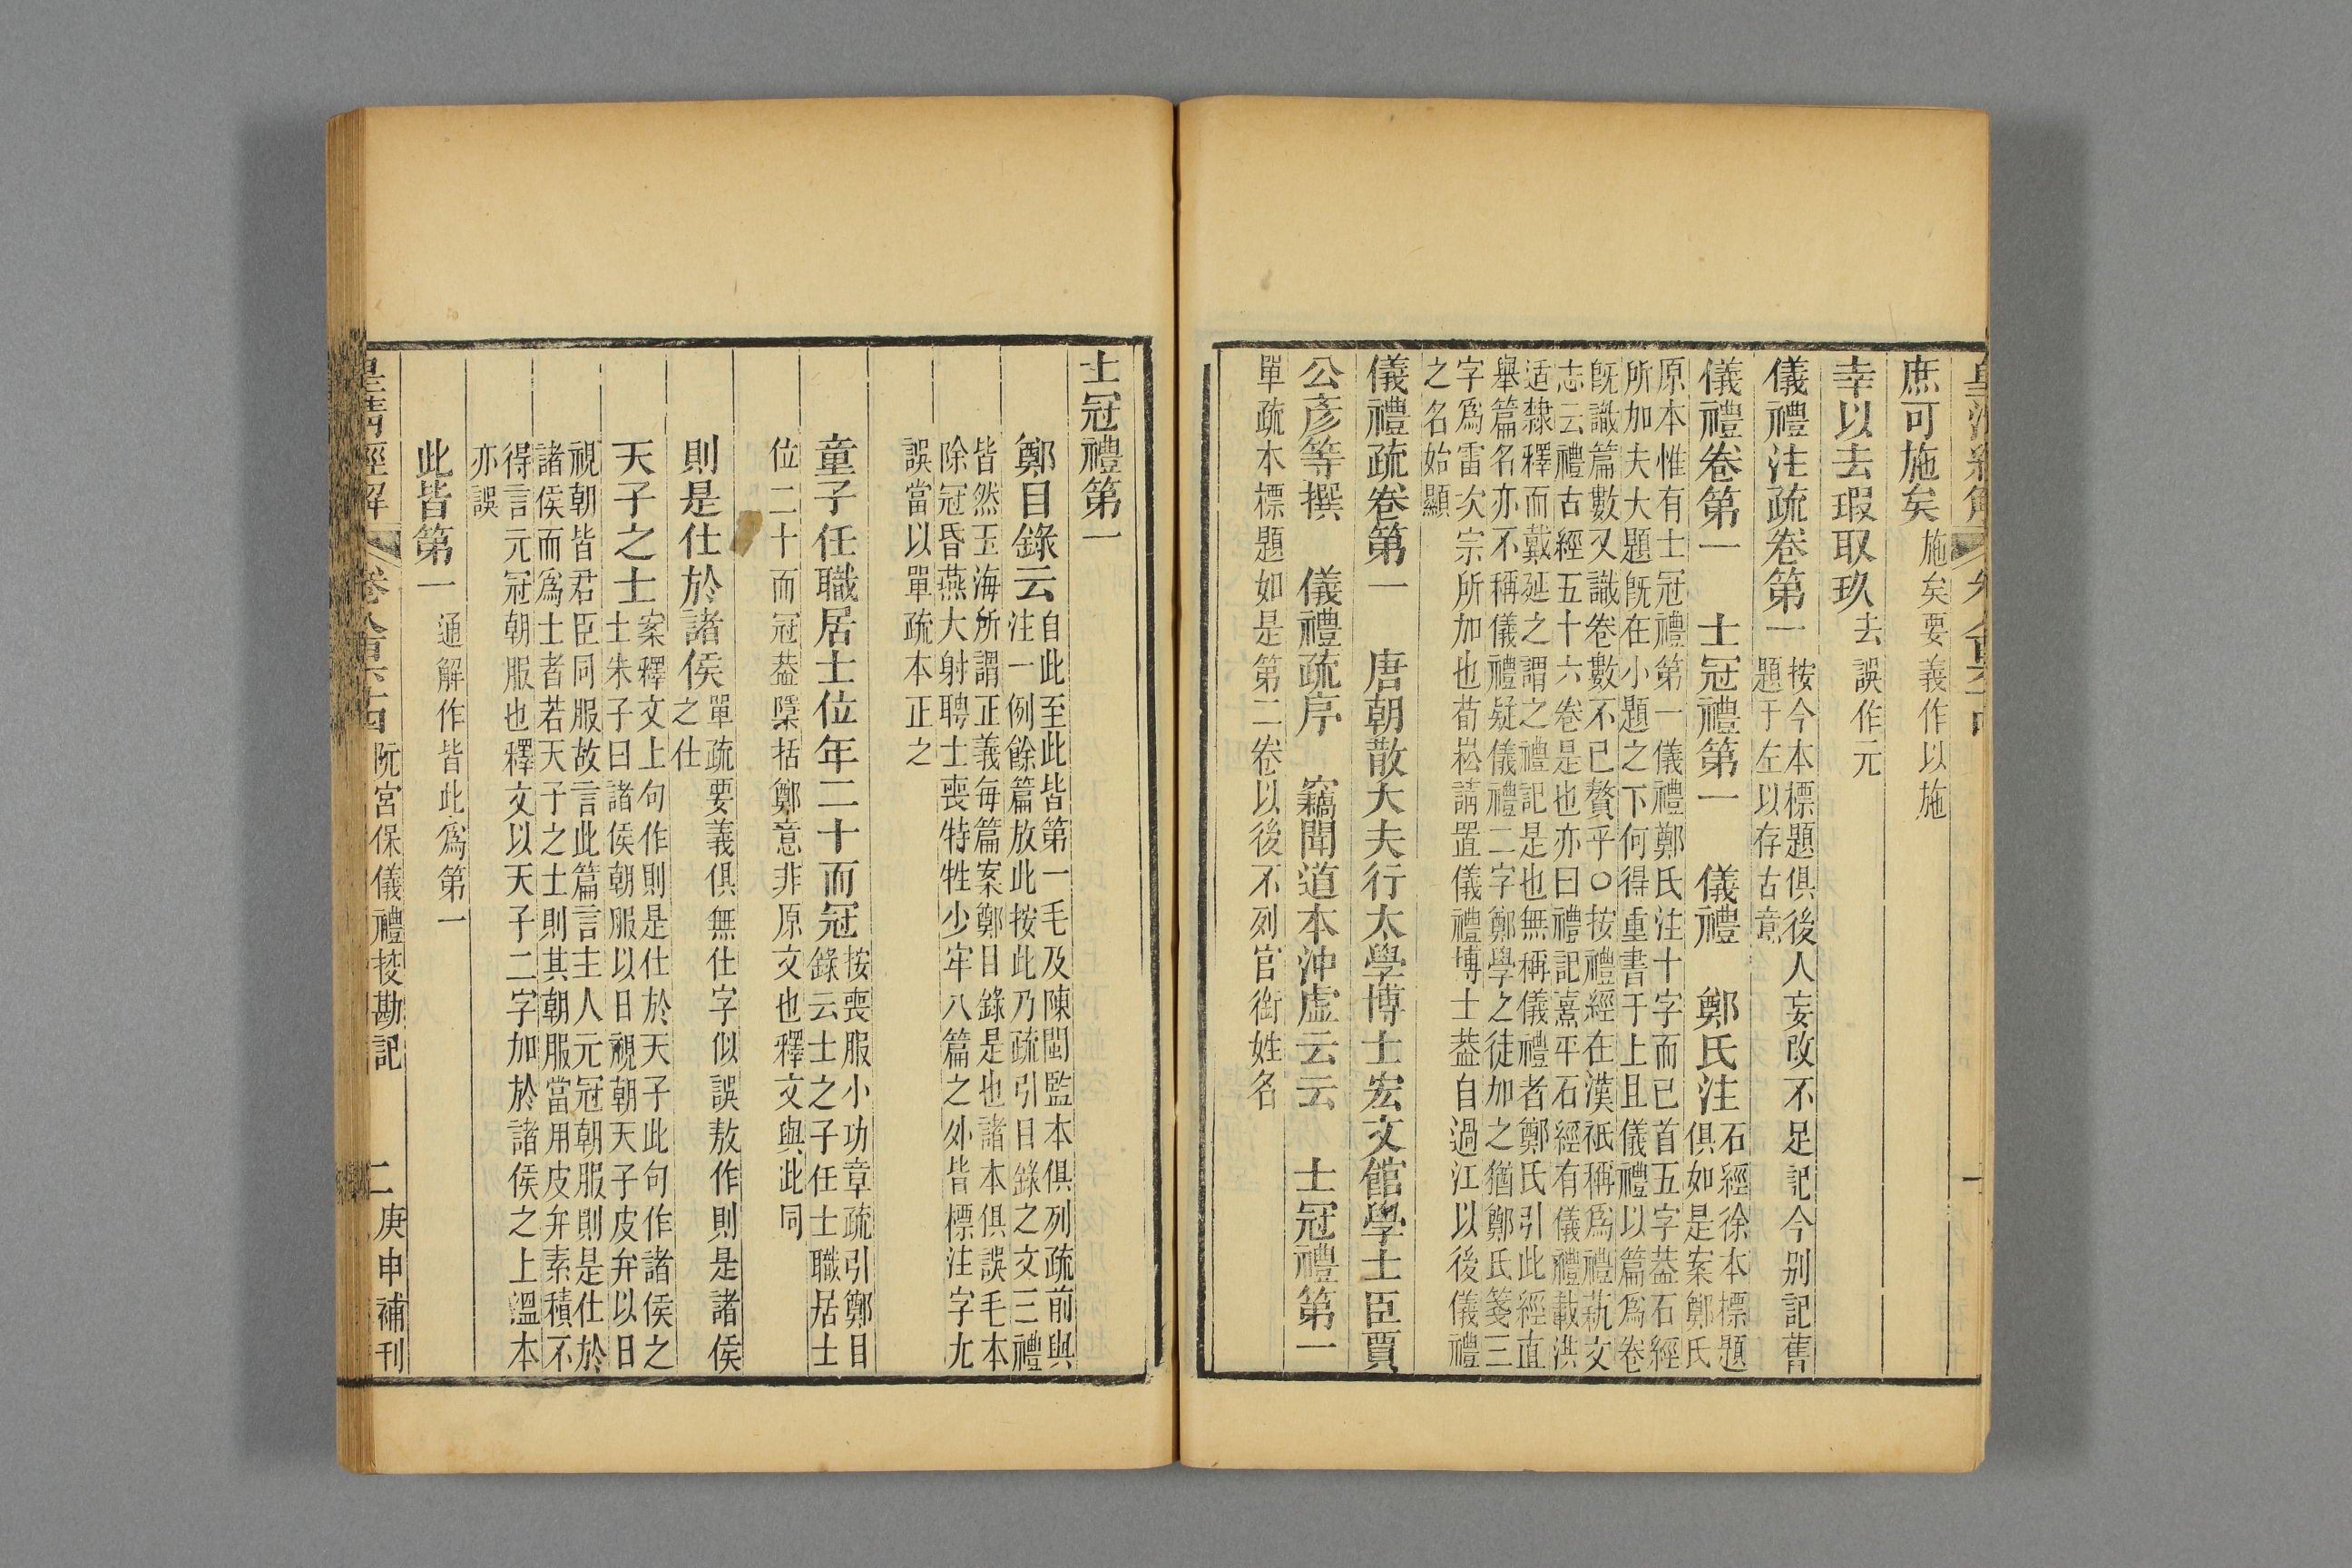 庶可施矣施矣要義作以施
幸以去瑕取玖去誤作元
儀禮注疏卷第一按今本標題俱後人妄改不足記今别記舊
題于左以存古意
儀禮卷第一　士冠禮第一　儀禮　鄭氏注石經徐本標題
俱如是案鄭氏
原本惟有士冠禮第一儀禮鄭氏注十字而已首五字葢石經
所加夫大題旣在小題之下何得重書于上且儀禮以篇爲卷
旣識篇數又識卷數不已贅乎○按禮經在漢祇稱爲禮蓺文
志云禮古經五十六卷是也亦曰禮記熹平石經有儀禮載洪
适隸釋而戴延之謂之禮記是也無稱儀禮者鄭氏引此經直
舉篇名亦不稱儀禮疑儀禮二字鄭學之徒加之猶鄭氏箋三
字爲雷次宗所加也荀崧請置儀禮博士葢自過江以後儀禮
之名始顯
儀禮疏卷第一　唐朝散大夫行太學博士宏文館學士臣賈
公彥等撰　儀禮疏序　竊聞道本沖虛云云　士冠禮第一
單疏本標題如是第二卷以後不列官銜姓名
士冠禮第一
鄭目錄云自此至此皆第一毛及陳閩監本俱列疏前與
注一例餘篇放此按此乃疏引目錄之文三禮
皆然玉海所謂正義每篇案鄭目錄是也諸本俱誤毛本
除冠昏燕大射聘士喪特牲少牢八篇之外皆標注字尤
誤當以單疏本正之
童子任職居士位年二十而冠按喪服小功章疏引鄭目
錄云士之子任士職居士
位二十而冠葢檃括鄭意非原文也釋文與此同
則是仕於諸侯單疏要義俱無仕字似誤敖作則是諸侯
之仕
天子之士案釋文上句作則是仕於天子此句作諸侯之
士朱子曰諸侯朝服以日視朝天子皮弁以日
視朝皆君臣同服故言此篇言主人元冠朝服則是仕於
諸侯而爲士者若天子之士則其朝服當用皮弁素積不
得言元冠朝服也釋文以天子二字加於諸侯之上溫本
亦誤
此皆第一通解作皆此爲第一
皇清經解　卷八百六十四　阮宮保儀禮挍勘記　二　庚申補刊